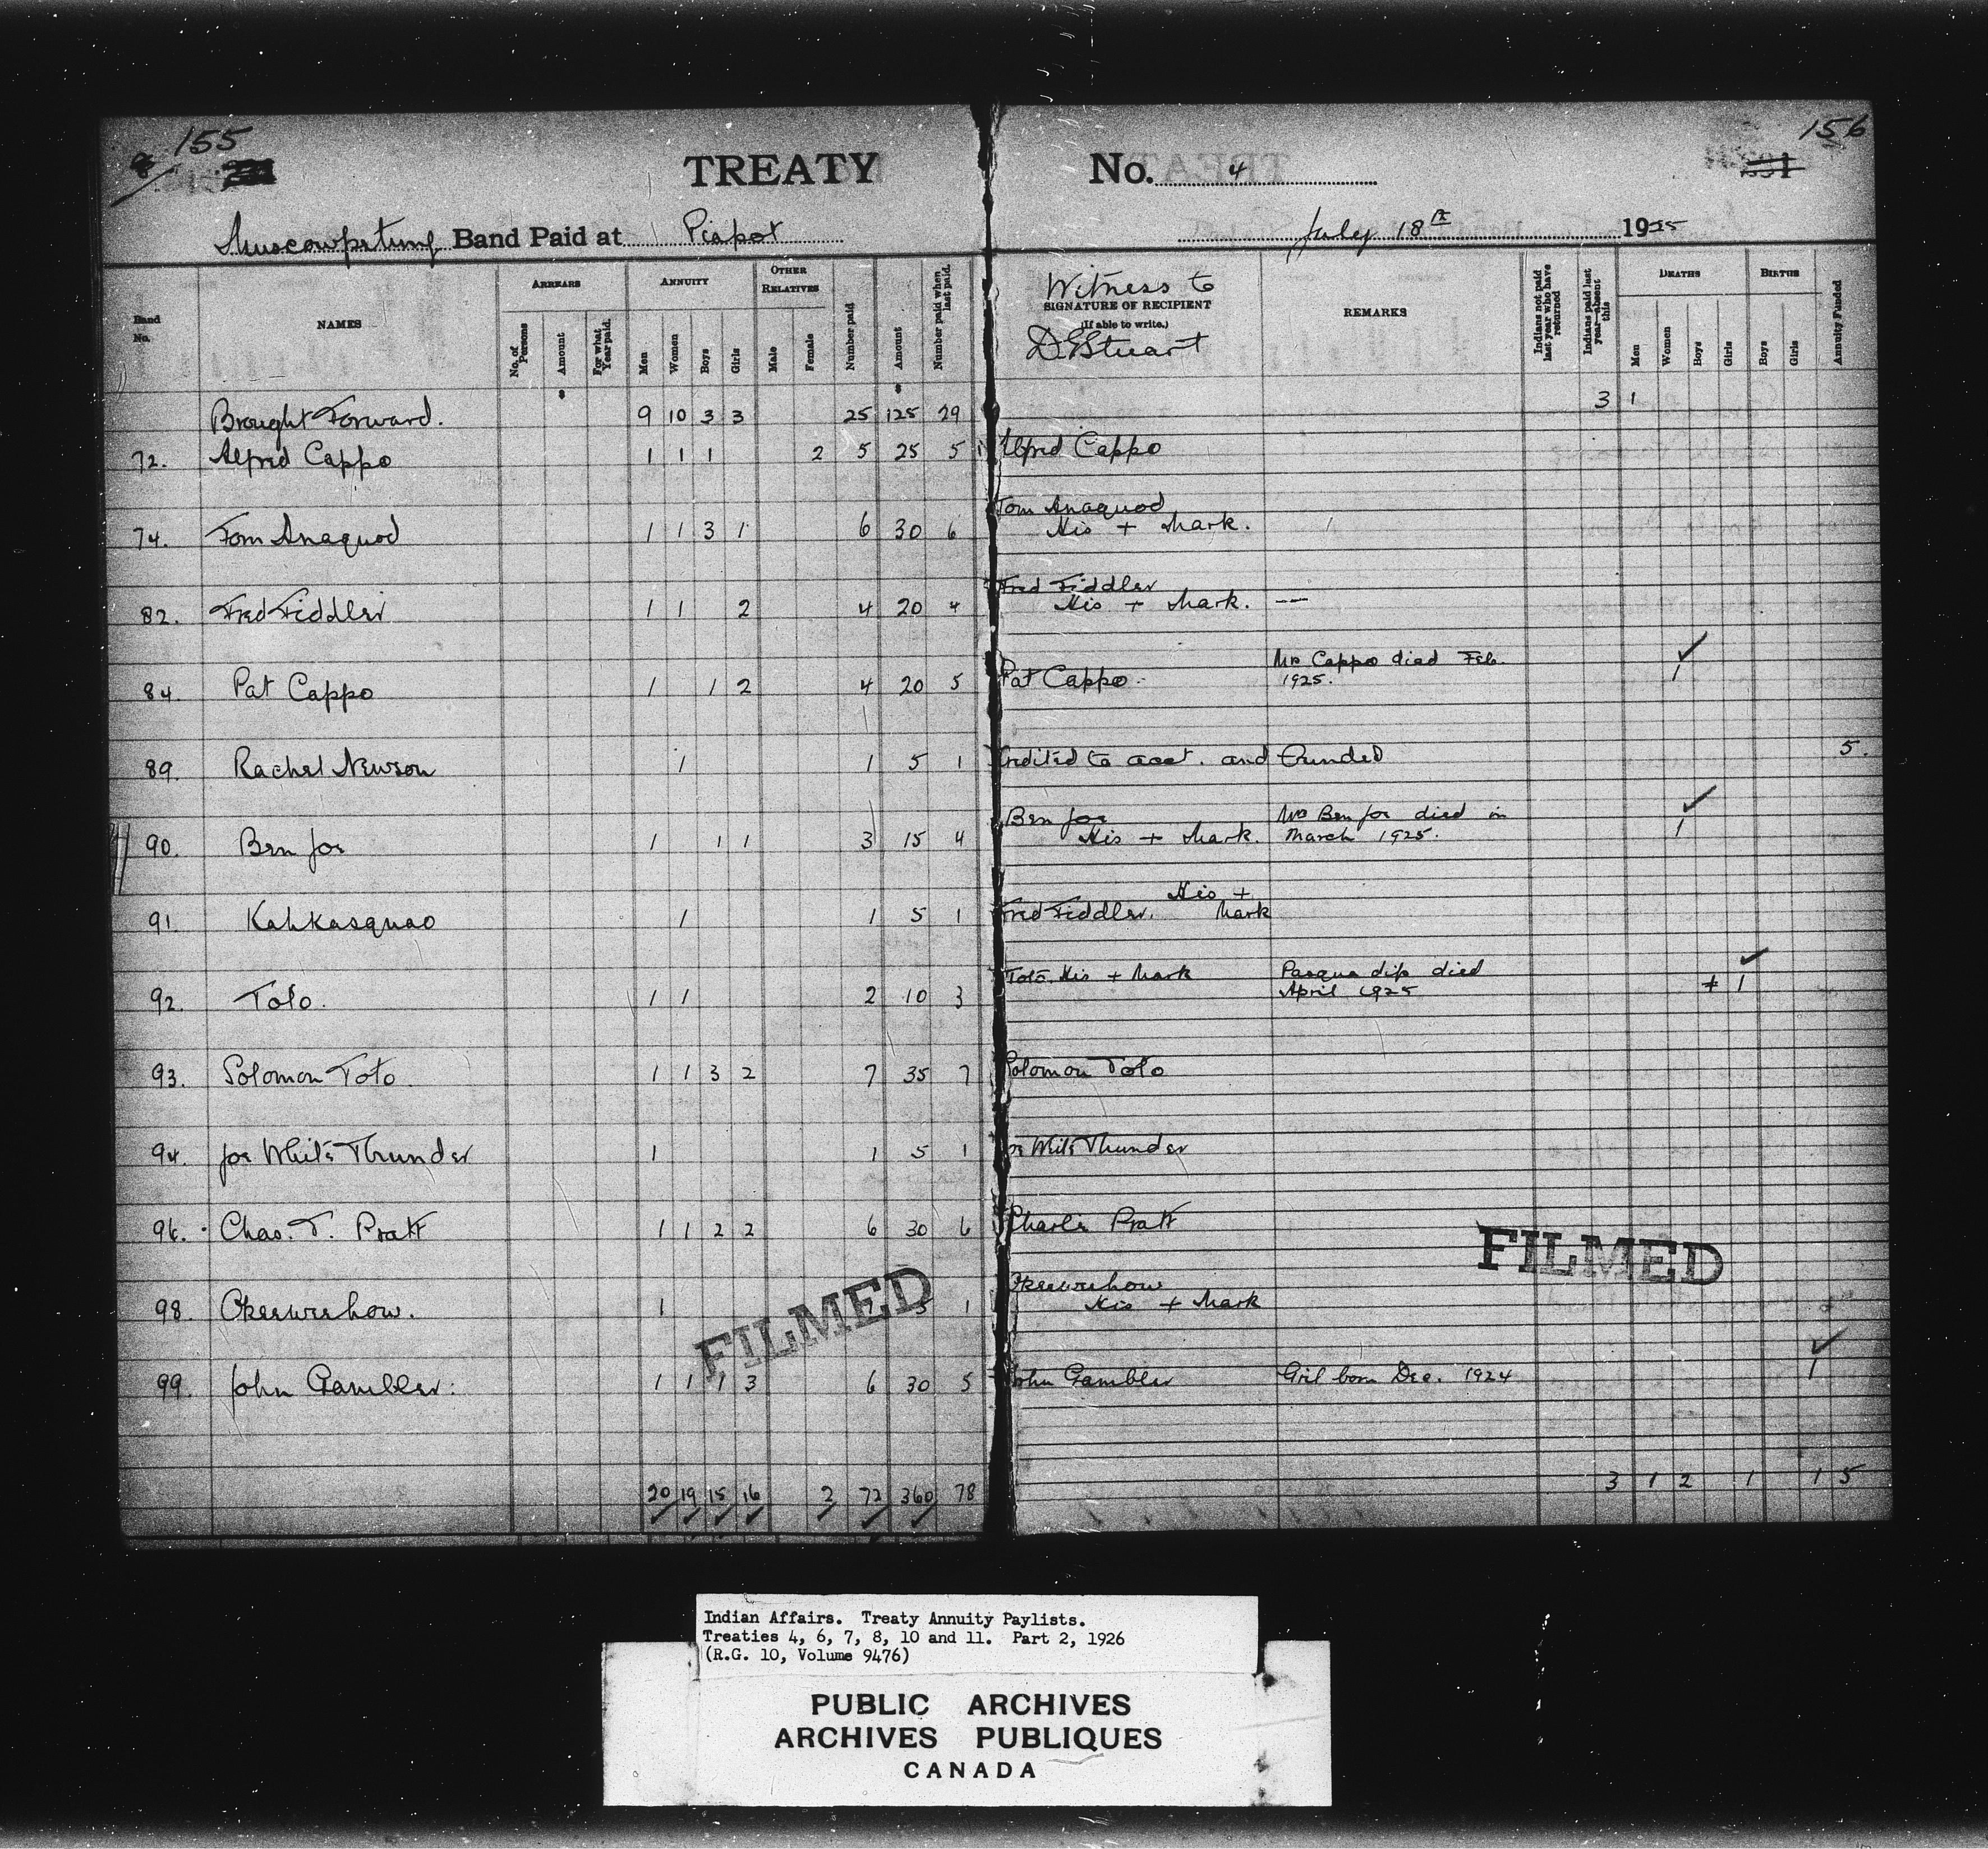 155
156
TREATY No. 4
Muscowpetung Band Paid at Piapot July 18th 1925
Band No.
NAMES
ARREARS
No. of Persons
Amount
For what Year paid.
ANNUITY
Men
Women
Boys
Girls
OTHER RELATIVES
Male
Female
Number paid
Amount
Number paid when last paid.
Witness to
SIGNATURE OF RECIPIENT
(If able to write.)
D Stuart
REMARKS
Indians not paid last year who have returned
Indians paid last year—absent this
DEATHS
Men
Women
Boys
Girls
BIRTHS
Boys
Girls
Annuity Funded
Brought Forward. 9 10 3 3 25 125 29 3 1
72. Alfred Cappo 1 1 1 2 5 25 5 Alfred Cappo
74. Tom Anaquod 1 1 3 1 6 30 6 Tom Anaquod
His + Mark.
82. Fred Fiddler 1 1 2 4 20 4 Fred Fiddler
His + Mark. —
84. Pat Cappo 1 1 2 4 20 5 Pat Cappo. Mrs Cappo died Feb. 1
1925.
89. Rachel Newson 1 1 5 1 Credited to acct. and funded 5.
90. Ben Joe 1 1 1 3 15 4 Ben Joe Mrs Ben Joe died in 1
His + Mark. March 1925.
91 Kahkasquao 1 1 5 1 Fred Fiddler. His + Mark
92. Toto. 1 1 2 10 3 Toto. His + Mark Pasqua dip died 1
April 1925
93. Solomon Toto. 1 1 3 2 7 35 7 Solomon Toto
94. Joe White Thunder 1 1 5 1 Joe White Thunder
96. Chas. T. Pratt 1 1 2 2 6 30 6 Charlie Pratt
98. Okeewuhow. 1 1 5 1 Okeewuhow
His + Mark
99. John Gambler. 1 1 1 3 6 30 5 John Gambler Girl born Dec. 1924 1
20 19 15 16 2 72 360 78 3 1 2 1 1 5
FILMED
FILMED
Indian Affairs. Treaty Annuity Paylists.
Treaties 4, 6, 7, 8, 10 and 11. Part 2, 1926
(R.G. 10, Volume 9476)
PUBLIC ARCHIVES
ARCHIVES PUBLIQUES
CANADA